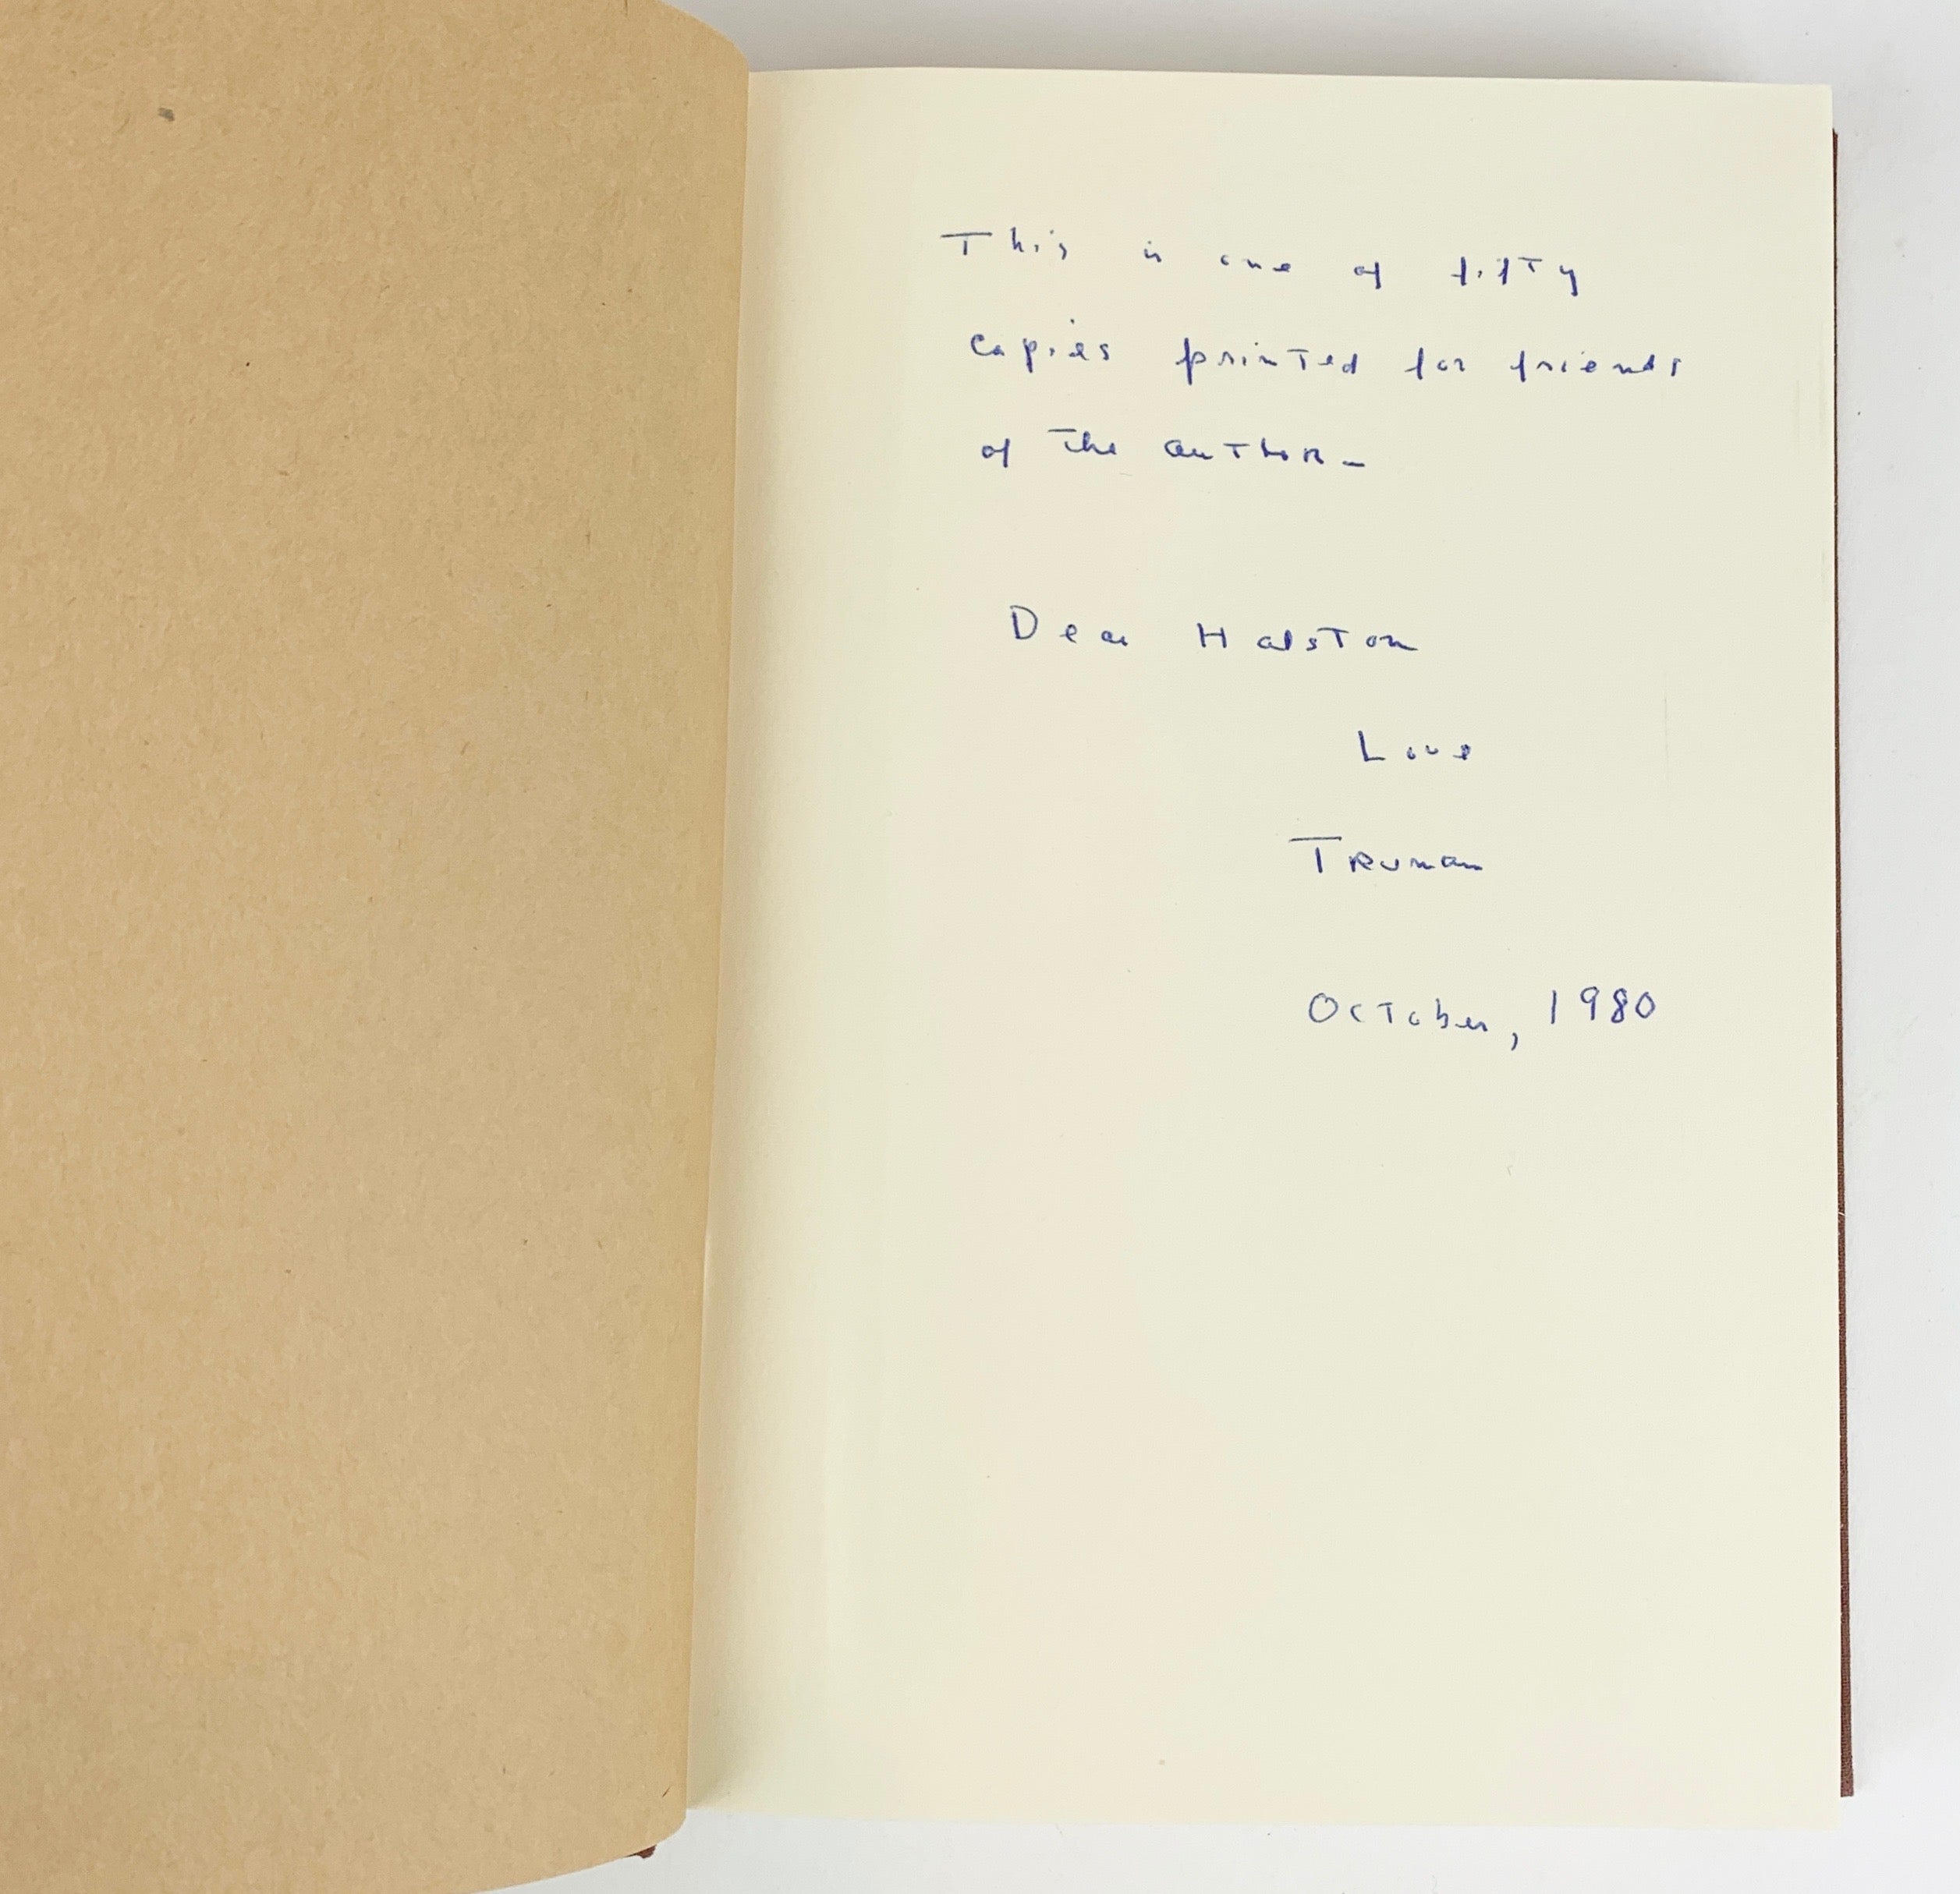 This is one of fifty
copies printed for friends
of the author -
Dear Halston
Love
Truman
October, 1980